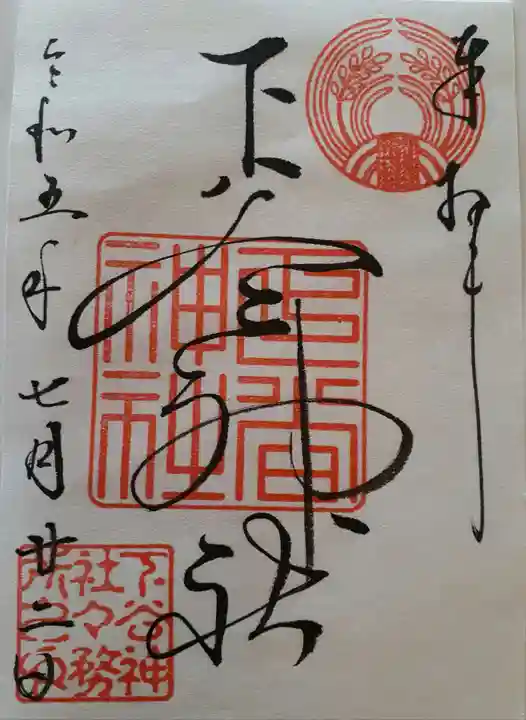 奉拝
下谷神社
下谷神社
令和五年七月廿二日
下谷神
社々務
所之印